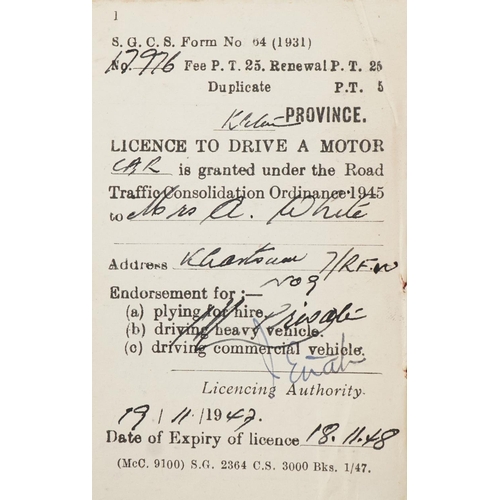 1
S. G. C. S. Form No 64 (1931)
No. 12976 Fee P. T. 25. Renewal P. T. 25
Duplicate P.T. 5
PROVINCE.
LICENCE TO DRIVE A MOTOR
CAR is granted under the Road
Traffic Consolidation Ordinance 1945
to Mrs A. White
Address Khartoum
Endorsement for :—
(a) plying for hire. Private
(b) driving heavy vehicle.
(c) driving commercial vehicle.
Licencing Authority.
19/11/1947
Date of Expiry of licence 18.11.48
(McC. 9100) S.G. 2364 C.S. 3000 Bks. 1/47.